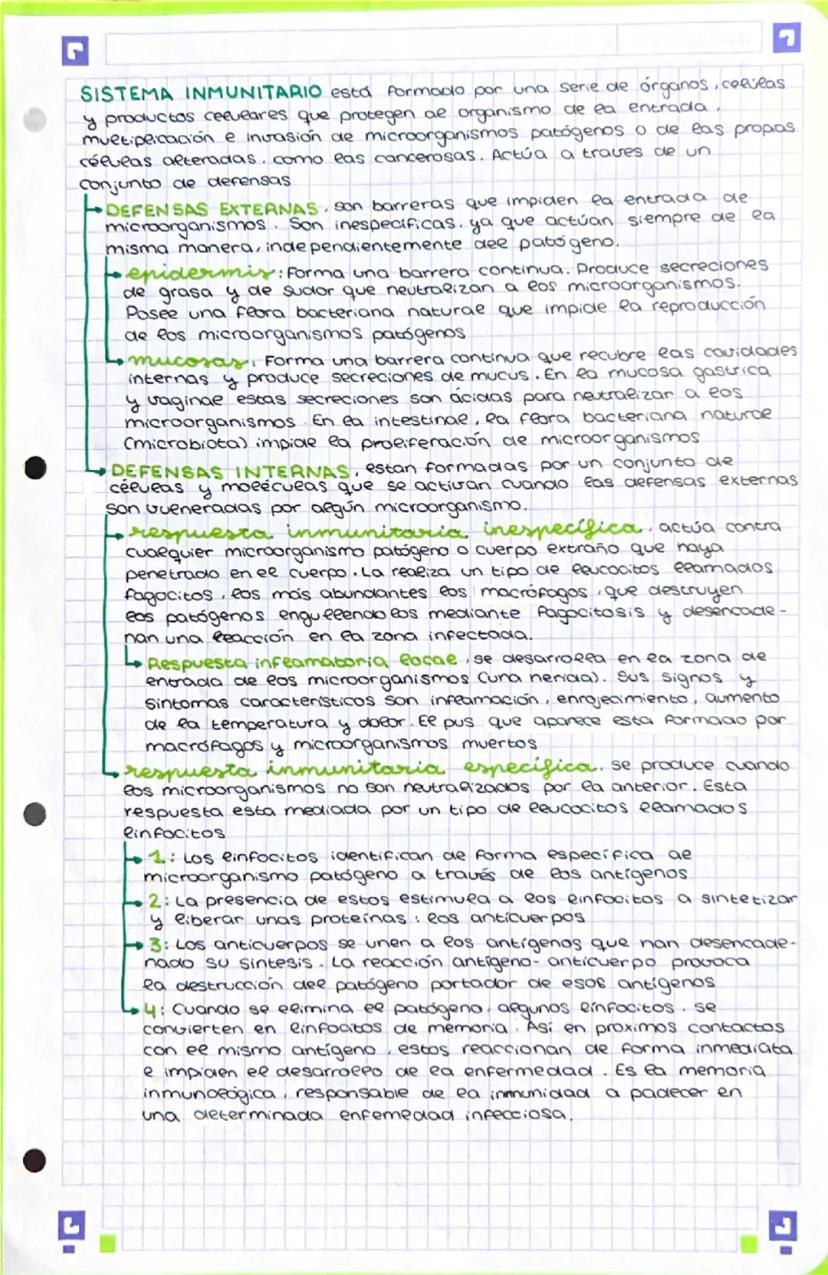 SISTEMA INMUNITARIO está formado por una serie de órganos, células
y productos celulares que protegen al organismo de la entrada,
multiplicación e invasión de microorganismos patógenos o de las propas
células alteradas, como las cancerosas. Actúa a traves de un
conjunto de defensas
DEFENSAS EXTERNAS, son barreras que impiden la entrada de
microorganismos. Son inespecíficas, ya que actúan siempre de la
misma manera, independientemente del patógeno.
epidermis: Forma una barrera continua. Produce secreciones
de grasa y de sudor que neutralizan a los microorganismos.
Posee una flora bacteriana natural que impide la reproducción
de los microorganismos patógenos
mucosas, Forma una barrera continua que recubre las cavidades
internas y produce secreciones de mucus. En la mucosa gastrica
y vaginal estas secreciones son ácidas para neutralizar a los
microorganismos. En la intestinal, la flora bacteriana natural
(microbiota) impide la proliferación de microorganismos
DEFENSAS INTERNAS, estan formadas por un conjunto de
células y moléculas que se activan cuando las defensas externas
son vulneradas por algún microorganismo.
respuesta inmunitaria inespecífica, actúa contra
cualquier microorganismo patógeno o cuerpo extraño que haya
penetrado en el cuerpo. La realiza un tipo de leucocitos llamados
fagocitos, los más abundantes los macrófogos, que destruyen
los patógenos engullendolos mediante fagocitosis y desencade-
nan una reacción en la zona infectada.
Respuesta inflamatoria local, se desarrolla en la zona de
entrada de los microorganismos (una herida). Sus signos y
sintomas característicos son inflamación, enrojecimiento, aumento
de la temperatura y dolor. El pus que aparece esta formado por
macrófagos y microorganismos muertos
respuesta inmunitaria específica, se produce cuando
los microorganismos no son neutralizados por la anterior. Esta
respuesta esta mediada por un tipo de leucocitos llamados
linfocitos
1: Los linfocitos identifican de forma específica al
microorganismo patógeno a través de los antígenos
2: La presencia de estos estimula a los linfocitos a sintetizar
y liberar unas proteínas: los anticuerpos
3: Los anticuerpos se unen a los antígenos que han desencade-
nado su síntesis. La reacción antígeno-anticuerpo provoca
la destrucción del patógeno portador de esos antígenos
4: Cuando se elimina el patógeno, algunos linfocitos, se
convierten en linfocitos de memoria. Así en proximos contactos
con el mismo antígeno, estos reaccionan de forma inmediata
e impiden el desarrollo de la enfermedad. Es la memoria
inmunológica, responsable de la inmunidad a padecer en
una determinada enfemedad infecciosa.